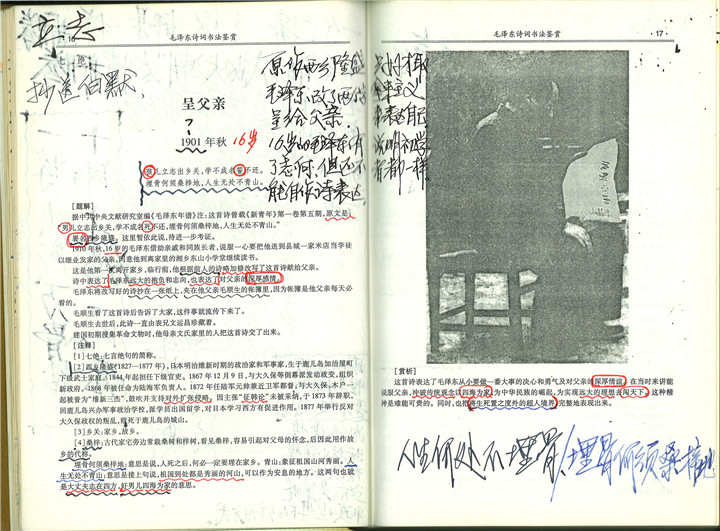 立志
16
毛泽东诗词书法鉴赏
抄送伯默
呈父亲
?
1901年秋 16岁
原作西乡隆盛
毛泽东改了两借
呈给父亲.
16岁的毛泽东有
了志向,但还不
能自作诗表达
孩儿立志出乡关,学不成名誓不还。
埋骨何须桑梓地,人生无处不青山。
[题解]
据中共中央文献研究室编《毛泽东年谱》注:这首诗曾载《新青年》第一卷第五期,原文是:
“男儿立志出乡关,学不成名死不还,埋骨何须桑梓地,人生无处不青山。”
署名西乡隆盛。这里暂依此说,待进一步考证。
1910年秋,16岁的毛泽东借助亲戚和同族长者,说服一心要把他送到县城一家米店当学徒
以继业发家的父亲,同意他到离家里的湘乡东山小学堂继续读书。
这是他第一次离开家乡,临行前,他根据前人的诗略加修改写了这首诗献给父亲。
诗中表达了毛泽东远大的抱负和志向,也表达了对父亲的深厚感情。
毛泽东将改写好的诗抄在一张纸上,夹在他父亲毛顺生的帐簿里,因为帐簿是他父亲每天必
看的。
毛顺生看了这首诗后告诉了大家,这件事就流传下来了。
毛顺生去世后,此诗一直由表兄文运昌珍藏着。
建国初期搜集革命文物时,他母亲文氏家里的人把这首诗交了出来。
[注释]
[1]七绝:七言绝句的简称。
[2]西乡隆盛(1827—1877年),日本明治维新时期的政治家和军事家,生于鹿儿岛加治屋町
下级武士家庭。1844年起担任下级官吏。1867年12月9日,与大久保等倒幕派发动政变,组织
新政府。1868年被任命为陆海军负责人。1872年任陆军元帅兼近卫军都督;与大久保、木户一
起被誉为“维新三杰”。鼓吹并支持对外扩张侵略。因主张“征韩论”未被采纳,于1873年辞职,
回鹿儿岛兴办军事政治学校,派学员出国留学,对日本学习西方有促进作用。1877年举行反对
大久保政权的叛乱,败死于鹿儿岛的城山。
[3]乡关:家乡,故乡。
[4]桑梓:古代家宅旁边常栽桑树和梓树,看见桑梓,容易引起对父母的怀念,后因此用作故
乡的代称。
埋骨何须桑梓地:意思是说,人死之后,何必一定要埋在家乡。青山:象征祖国山河秀丽。人
生无处不青山:意思是接上句说,祖国到处都是秀丽的河山,可以作为安息的地方。这两句也就
是大丈夫志在四方,好男儿四海为家的意思。
毛泽东诗词书法鉴赏
·17·
[赏析]
这首诗表达了毛泽东从小要做一番大事的决心和勇气及对父亲的深厚情谊。在当时来讲能
说服父亲,冲破传统观念以四海为家,为中华民族的崛起,为实现远大的理想去闯天下。这种精
神是难能可贵的。同时,也把将生死置之度外的超人境界,完整地表现出来。
人生何处不埋骨,埋骨何须桑梓地